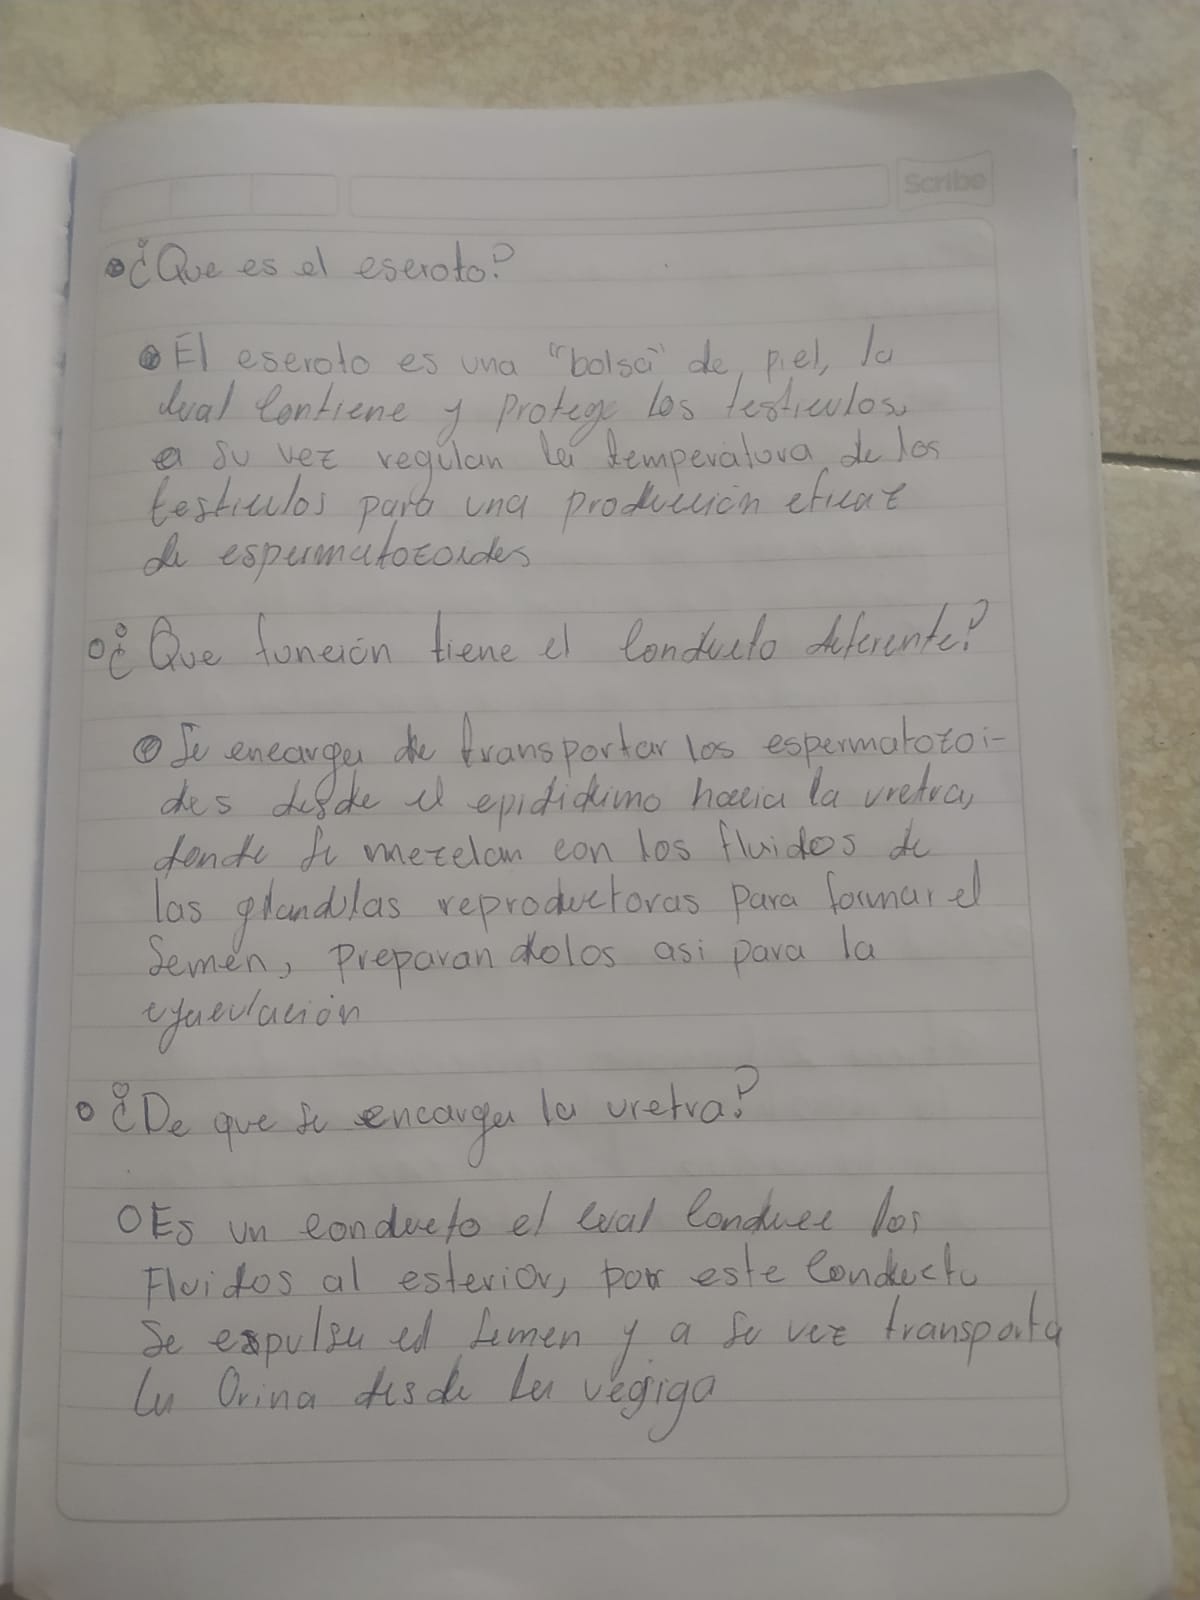 Scribe
¿Que es el escroto?
El escroto es una "bolsa" de piel, la
cual contiene y protege los testiculos,
a su vez regulan la temperatura de los
testiculos para una producción eficaz
de espermatozoides
¿Que función tiene el conducto deferente?
Se encarga de transportar los espermatozoi-
des desde el epididimo hacia la uretra,
donde se mezclan con los fluidos de
las glandulas reproductoras para formar el
semen, preparandolos asi para la
eyaculación
¿De que se encarga la uretra?
Es un conducto el cual conduce los
Fluidos al esterior, por este conducto
se espulsa el semen y a su vez transporta
la Orina desde la vegiga